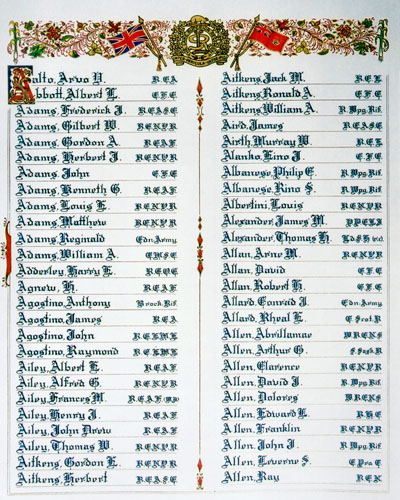 Aalto, Arvo Y. R.C.A.
Abbott, Albert L. C.F.C.
Adams, Frederick J. R.C.A.S.C.
Adams, Gilbert W. R.C.N.V.R.
Adams, Gordon A. R.C.A.F.
Adams, Herbert J. R.C.N.V.R.
Adams, John C.F.C.
Adams, Kenneth G. R.C.A.F.
Adams, Louis L. R.C.N.V.R.
Adams, Matthew R.C.N.V.R.
Adams, Reginald Cdn. Army
Adams, William A.
Adderley, Harry L. R.C.O.C.
Agnew, H. R.C.A.F.
Agostino, Anthony Brock. Rif.
Agostino, James R.C.A.
Agostino, John R.C.E.M.E.
Agostino, Raymond R.C.E.M.E.
Ailey, Albert E. R.C.A.F.
Ailey, Alfred G. R.C.N.V.R.
Ailey, Frances M. R.C.A.F. (W.D.)
Ailey, Henry J. R.C.A.F.
Ailey, John Drew R.C.A.F.
Ailey, Thomas W. R.C.N.V.R.
Aitkens, Gordon L. R.C.N.V.R.
Aitkens, Herbert R.C.A.S.C.
Aitkens, Jack M. R.C.E.
Aitkens, Ronald A. C.F.C.
Aitkens, William A. R. Wpg. Rif.
Aird, James R.C.A.S.C.
Airth, Murray W. R.C.E.
Alanko, Eino J. C.F.C.
Albanese, Philip E. R. Wpg. Rif.
Albanese, Rino S. R. Wpg. Rif.
Albertini, Louis R.C.N.V.R.
Alexander, James M. P.P.C.L.I.
Alexander, Thomas H.
Allan, Arne M. R.C.N.V.R.
Allan, David C.F.C.
Allan, Robert H. C.F.C.
Allard, Conrad J. Cdn. Army
Allard, Rheal L. E. Scot. R.
Allen, Abrillamae W.R.E.N.S.
Allen, Arthur G. S. Sask. R.
Allen, Clarence R.C.N.V.R.
Allen, David J. R. Wpg. Rif.
Allen, Dolores W.R.E.N.S.
Allen, Edward L.
Allen, Franklin R.C.N.V.R.
Allen, John J. R. Wpg. Rif.
Allen, Laverne S. C. Pro. C.
Allen, Ray R.C.N.